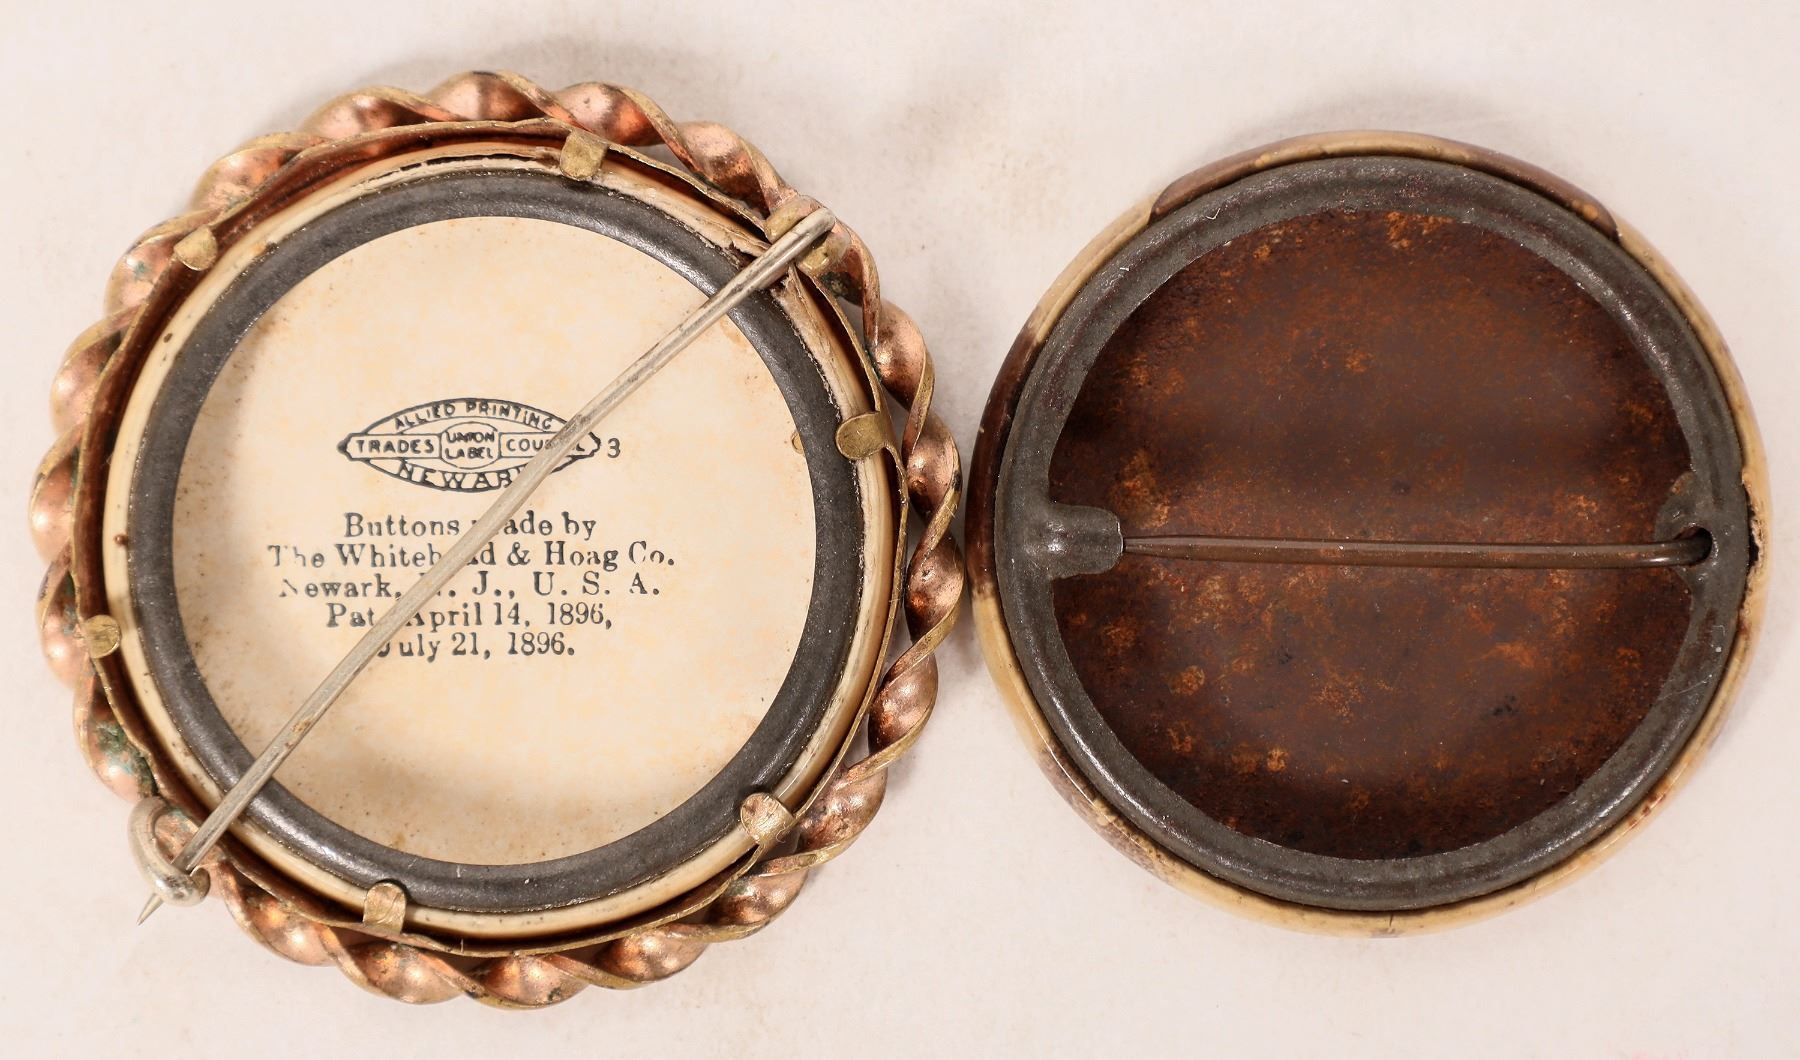 ALLIED PRINTING
TRADES UNION LABEL COUNCIL 3
NEWARK
Buttons made by
The Whitehead & Hoag Co.
Newark, N. J., U. S. A.
Pat. April 14, 1896,
July 21, 1896.